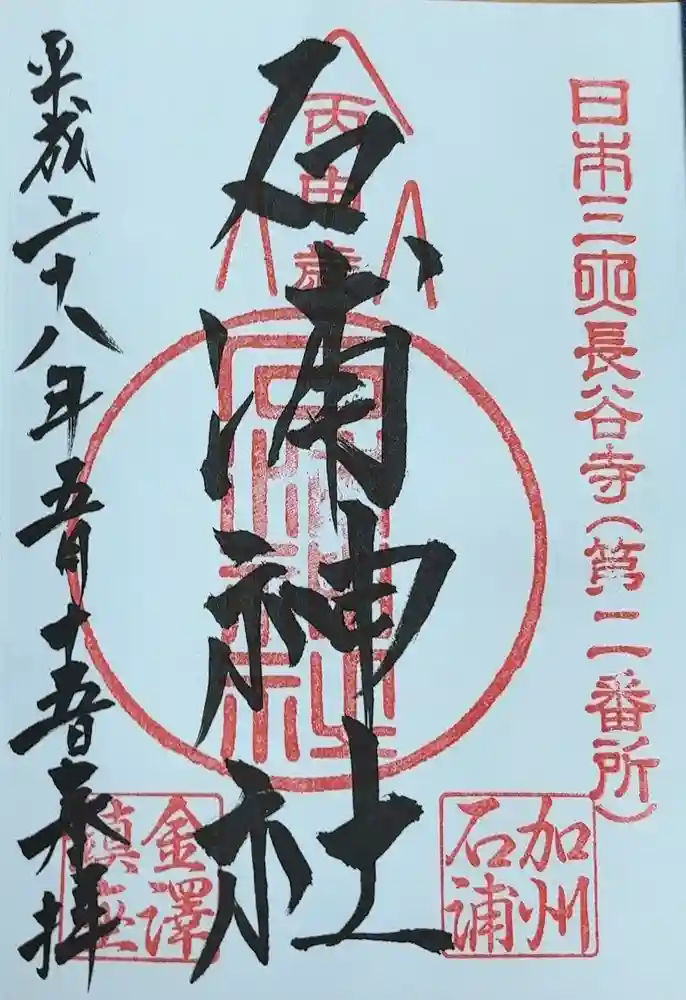 日本三爽長谷寺(第二番所)
丙申歳
石浦神社
加州
石浦
平成二十八年五月十五日奉拝
金澤
鎮座